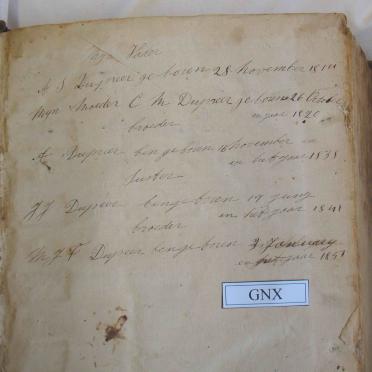 Myn Vader
A S Dupreez geboorn 28 November 1814
Myn Moeder C M Dupreez geboorn 26
in jaar 1820
broeder
A Dupreez ben geboorn 16 November
in het jaar 1838
Suster
J J Dupreez ben geboorn 19
in het jaar 1841
broeder
M J F Dupreez ben geboorn 3 January
in het jaar 1851
GNX